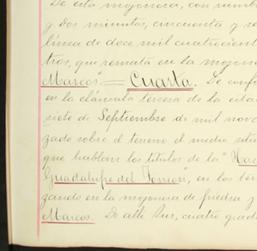 De esta mojonera, con rumbo
y dos minutos, cincuenta y se
línea de doce mil cuatrocient
tros, que remata en la mojone
Marcos". Cuarta. De confo
en la cláusula tercera de la cita
siete de Septiembre de mil nove
zado sobre el terreno el medio
que hablan los títulos de la "Hac
Guadalupe del", en los
zando en la mojonera de piedra y
Marcos. De allí Sur, cuatro grad